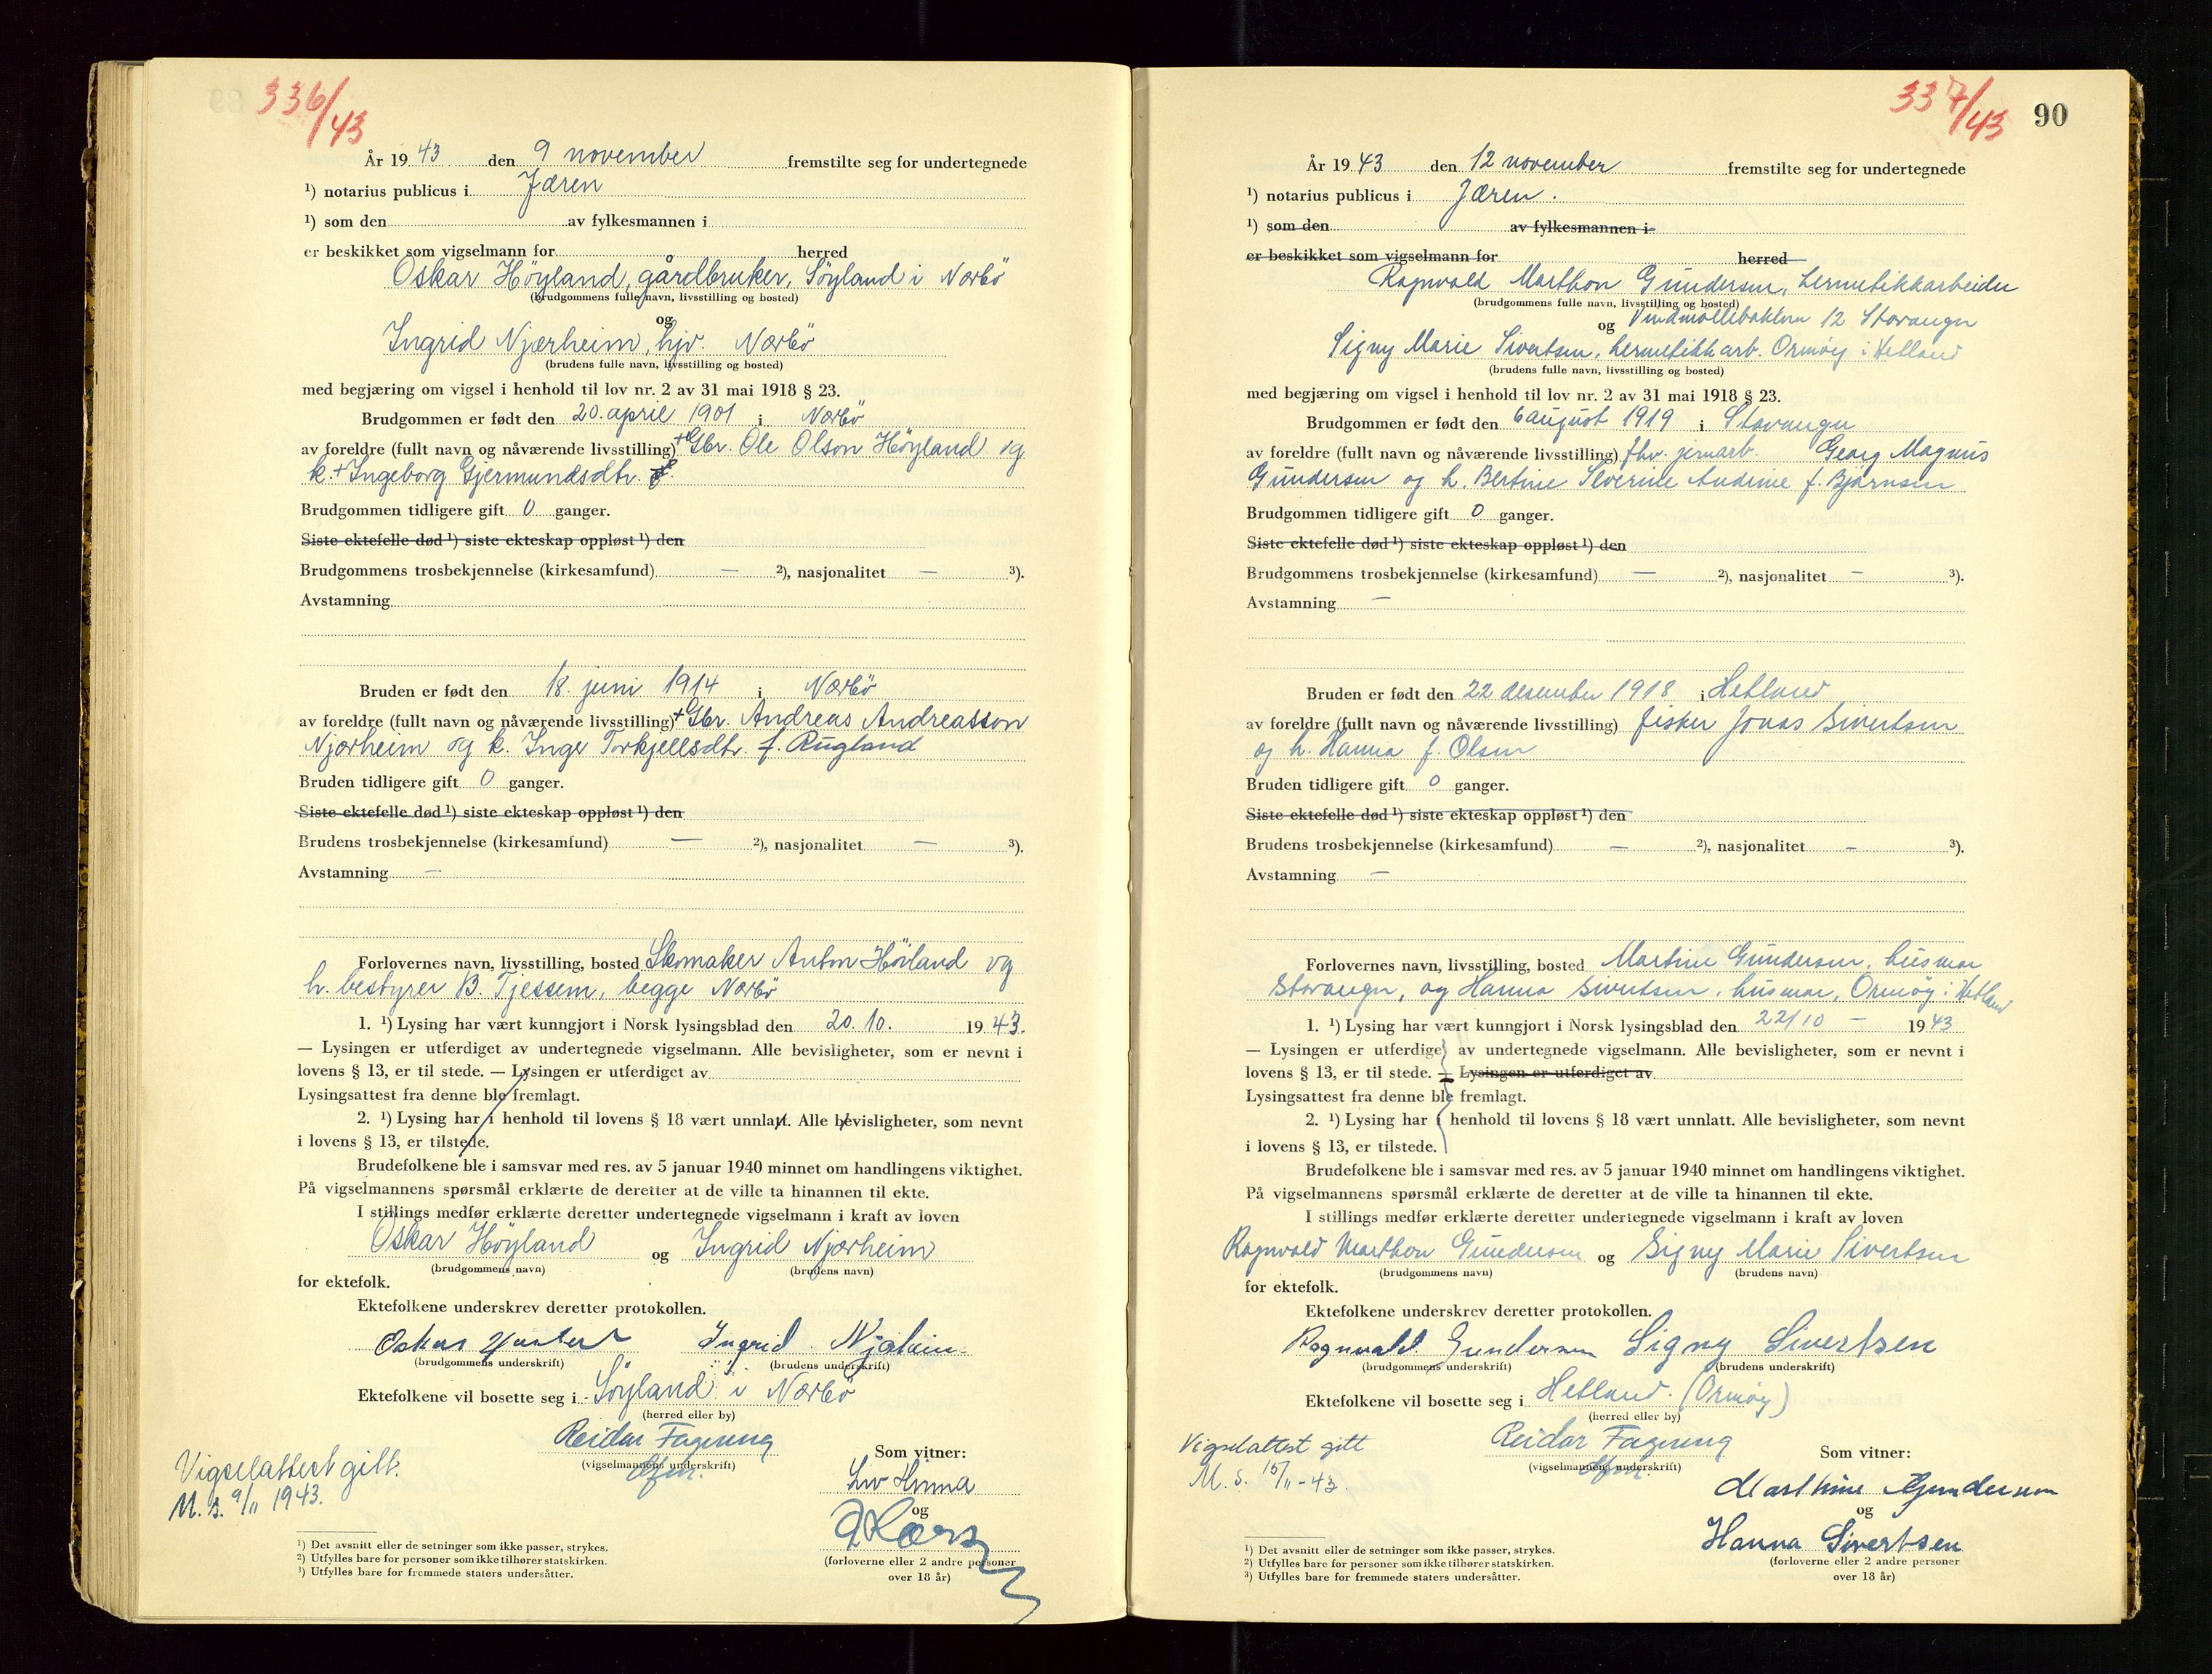 336/43
År 19 43 den 9 november fremstilte seg for undertegnede
¹) notarius publicus i Jæren
¹) som den av fylkesmannen i
er beskikket som vigselmann for herred
Oskar Höyland, gårdbruker, Söyland i Nærbö
(brudgommens fulle navn, livsstilling og bosted)
og
Ingrid Njærheim, hjv. Nærbö
(brudens fulle navn, livsstilling og bosted)
med begjæring om vigsel i henhold til lov nr. 2 av 31 mai 1918 § 23.
Brudgommen er født den 20. april 1901 i Nærbö
av foreldre (fullt navn og nåværende livsstilling) + Gbr. Ole Olson Höyland og
k. + Ingeborg Gjermundsdtr.
Brudgommen tidligere gift 0 ganger.
Siste ektefelle død ¹) siste ekteskap oppløst ¹) den
Brudgommens trosbekjennelse (kirkesamfund) — ²), nasjonalitet — ³).
Avstamning
Bruden er født den 18. juni 1914 i Nærbö
av foreldre (fullt navn og nåværende livsstilling) + Gbr. Andreas Andreasson
Njærheim og k. Inger Torkjellsdtr. f. Rugland
Bruden tidligere gift 0 ganger.
Siste ektefelle død ¹) siste ekteskap oppløst ¹) den
Brudens trosbekjennelse (kirkesamfund) — ²), nasjonalitet — ³).
Avstamning —
Forlovernes navn, livsstilling, bosted Skomaker Anton Höiland og
h. bestyrer B. Tjessem, begge Nærbö
1. ¹) Lysing har vært kunngjort i Norsk lysingsblad den 20. 10. 19 43.
— Lysingen er utferdiget av undertegnede vigselmann. Alle bevisligheter, som er nevnt i
lovens § 13, er til stede. — Lysingen er utferdiget av
Lysingsattest fra denne ble fremlagt.
2. ¹) Lysing har i henhold til lovens § 18 vært unnlatt. Alle bevisligheter, som nevnt
i lovens § 13, er tilstede.
Brudefolkene ble i samsvar med res. av 5 januar 1940 minnet om handlingens viktighet.
På vigselmannens spørsmål erklærte de deretter at de ville ta hinannen til ekte.
I stillings medfør erklærte deretter undertegnede vigselmann i kraft av loven
Oskar Höyland og Ingrid Njærheim
(brudgommens navn) (brudens navn)
for ektefolk.
Ektefolkene underskrev deretter protokollen.
Oskar Ingrid
(brudgommens underskrift) (brudens underskrift)
Ektefolkene vil bosette seg i Söyland i Nærbö
(herred eller by)
Reidar Fagerung
(vigselmannens underskrift)
Som vitner:
Liv Hinna
og
(forloverne eller 2 andre personer
over 18 år)
Vigselattest gitt.
M. S. 9/11 1943.
¹) Det avsnitt eller de setninger som ikke passer, strykes.
²) Utfylles bare for personer som ikke tilhører statskirken.
³) Utfylles bare for fremmede staters undersåtter.
337/43
90
År 19 43 den 12 november fremstilte seg for undertegnede
¹) notarius publicus i Jæren.
¹) som den av fylkesmannen i
er beskikket som vigselmann for herred
Ragnvald Marthon Gundersen, hermetikkarbeider
(brudgommens fulle navn, livsstilling og bosted)
og Vindmøllebakken 12 Stavanger
Signy Marie Sivertsen, hermetikkarb. Ormøy i Hetland
(brudens fulle navn, livsstilling og bosted)
med begjæring om vigsel i henhold til lov nr. 2 av 31 mai 1918 § 23.
Brudgommen er født den 6 august 1919 i Stavanger
av foreldre (fullt navn og nåværende livsstilling) fhv. jernarb. Georg Magnus
Gundersen og h. Bertine Severine Andine f. Bjørnsen
Brudgommen tidligere gift 0 ganger.
Siste ektefelle død ¹) siste ekteskap oppløst ¹) den
Brudgommens trosbekjennelse (kirkesamfund) — ²), nasjonalitet — ³).
Avstamning —
Bruden er født den 22 desember 1918 i Hetland
av foreldre (fullt navn og nåværende livsstilling) fisker Jonas Sivertsen
og h. Hanna f. Olsen
Bruden tidligere gift 0 ganger.
Siste ektefelle død ¹) siste ekteskap oppløst ¹) den
Brudens trosbekjennelse (kirkesamfund) — ²), nasjonalitet — ³).
Avstamning —
Forlovernes navn, livsstilling, bosted Martine Gundersen, husmor
Stavanger, og Hanna Sivertsen, husmor, Ormøy i Hetland
1. ¹) Lysing har vært kunngjort i Norsk lysingsblad den 22/10 — 19 43
— Lysingen er utferdiget av undertegnede vigselmann. Alle bevisligheter, som er nevnt i
lovens § 13, er til stede. — Lysingen er utferdiget av
Lysingsattest fra denne ble fremlagt.
2. ¹) Lysing har i henhold til lovens § 18 vært unnlatt. Alle bevisligheter, som nevnt
i lovens § 13, er tilstede.
Brudefolkene ble i samsvar med res. av 5 januar 1940 minnet om handlingens viktighet.
På vigselmannens spørsmål erklærte de deretter at de ville ta hinannen til ekte.
I stillings medfør erklærte deretter undertegnede vigselmann i kraft av loven
Ragnvald Marthon Gundersen og Signy Marie Sivertsen
(brudgommens navn) (brudens navn)
for ektefolk.
Ektefolkene underskrev deretter protokollen.
Ragnvald Gundersen Signy Sivertsen
(brudgommens underskrift) (brudens underskrift)
Ektefolkene vil bosette seg i Hetland. (Ormøy)
(herred eller by)
Reidar Fagerung
(vigselmannens underskrift)
Som vitner:
Marthine Gundersen
og
Hanna Sivertsen
(forloverne eller 2 andre personer
over 18 år)
Vigselattest gitt
M. S. 15/11-43.
¹) Det avsnitt eller de setninger som ikke passer, strykes.
²) Utfylles bare for personer som ikke tilhører statskirken.
³) Utfylles bare for fremmede staters undersåtter.